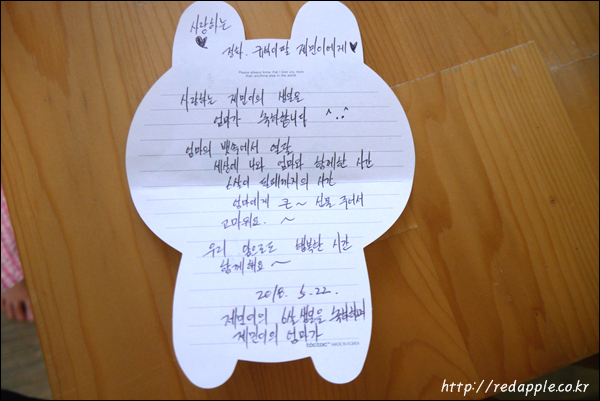 사랑하는
제민이에게
Please always know that I love you more
than anything else in the world.
사랑하는 제민이의 생일을
엄마가 축하합니다 ^..^
엄마의 뱃속에서 열달
세상에 나와 엄마와 함께한 시간
6살이 될때까지의 시간
엄마에게 큰~ 선물 주어서
고마워요. ~
우리 앞으로도 행복한 시간
함께해요~
2018. 5. 22.
제민이의 6살 생일을 축하하며
제민이의 엄마가
MADE IN KOREA
http://redapple.co.kr